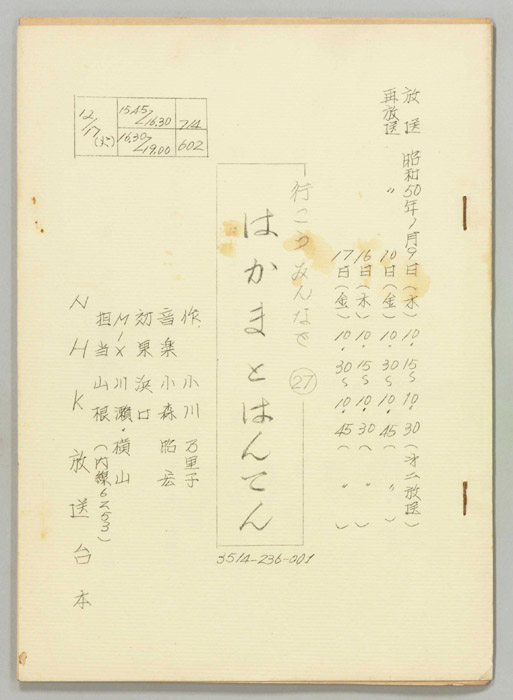 放送 昭和50年1月9日(木) 10.15~10.30(第二放送)
再放送 〃 10日(金) 10.30~10.45( 〃 )
16日(木) 10.15~10.30( 〃 )
17日(金) 10.30~10.45( )
行こうみんなで ㉗
はかまとはんてん
3514-236-001
12/17(火)
15.45/16.30 7.4
16.30/19.00 602
作. 小川 万里子
音楽 小森 昭宏
効果 浜口
MIX 川瀬・横山
担当 山根(内線6253)
NHK放送台本